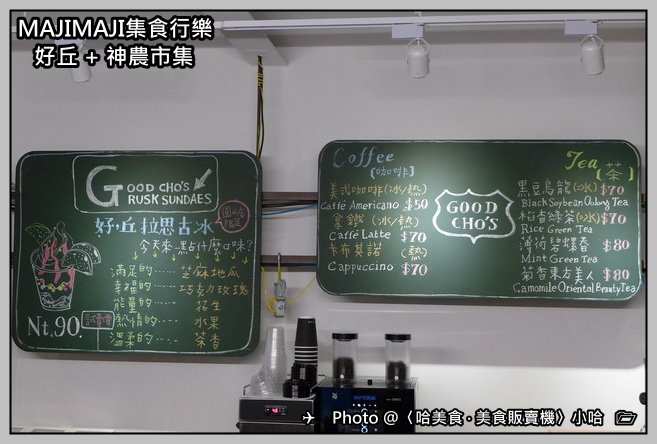 MAJIMAJI集食行樂
好丘 + 神農市集
GOOD CHO'S
RUSK SUNDAES
圓山店
限定
好·丘 拉思古冰
今天來一點什麼口味?
滿足的····· 芝麻地瓜
幸福的···· 巧克力玫瑰
能量的···· 花生
熱情的···· 水果
溫柔的···· 茶香
Nt,90.
試賣價
Coffee
(咖啡)
美式咖啡(冰/熱)
Caffé Americano $50
拿鐵 (冰/熱)
Caffé Latte $70
卡布其諾 (熱)
Cappuccino $70
GOOD
CHO'S
Tea
(茶)
黑豆烏龍(冰) $70
Black Soybean Oolong Tea
稻香綠茶(冰) $70
Rice Green Tea
薄荷碧螺春 $80
Mint Green Tea
菊香東方美人 $80
Camomile Oriental Beauty Tea
Photo @〈哈美食·美食販賣機〉小哈